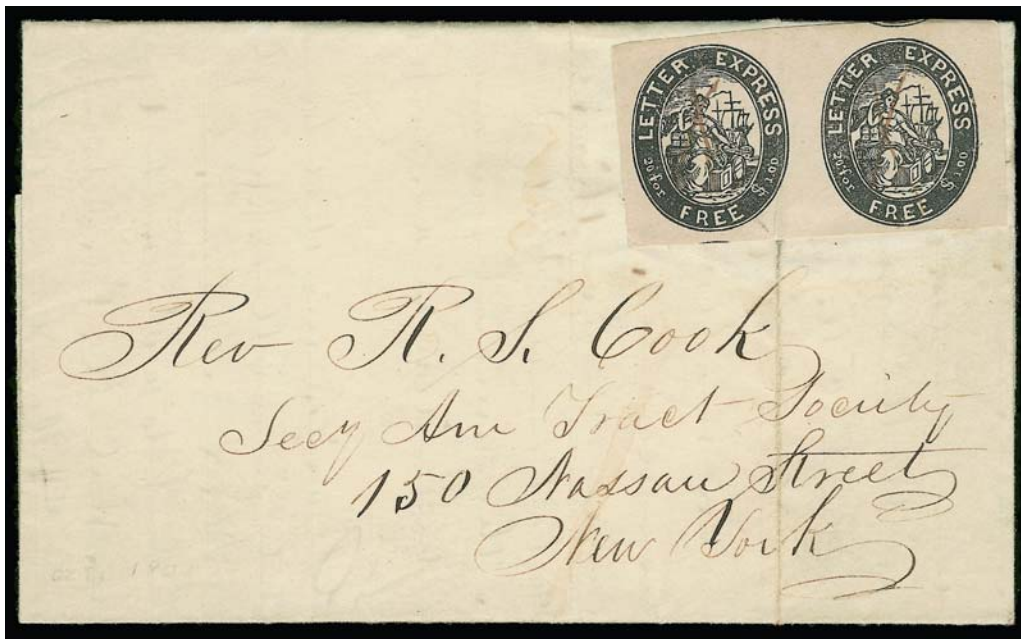 LETTER EXPRESS
20 for $1.00
FREE
LETTER EXPRESS
20 for $1.00
FREE
Rev R. S. Cook
Secy Am Tract Society
150 Nassau Street
New York